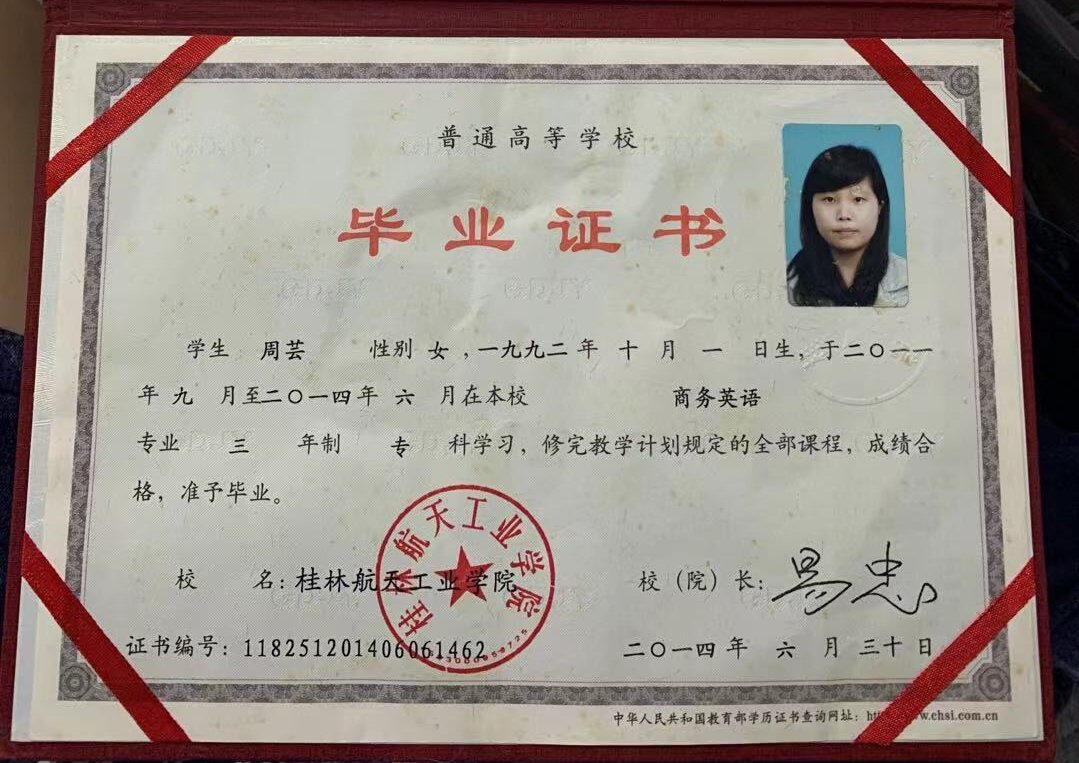 普通高等学校
毕业证书
学生 周芸 性别 女，一九九二 年 十 月 一 日生，于二〇一一
年 九 月至二〇一四年 六 月在本校 商务英语
专业 三 年制 专 科学习，修完教学计划规定的全部课程，成绩合
格，准予毕业。
桂林航天工业学院
校 名：桂林航天工业学院
校（院）长：易忠
证书编号：118251201406061462
二〇一四年 六 月 三十 日
中华人民共和国教育部学历证书查询网址：www.chsi.com.cn